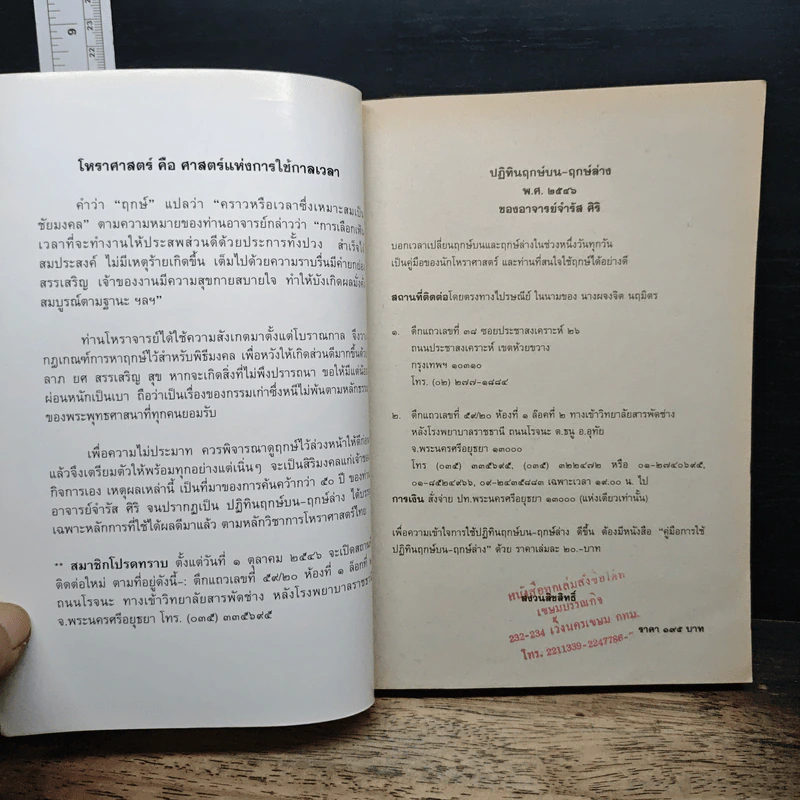 โหราศาสตร์ คือ ศาสตร์แห่งการใช้กาลเวลา
คำว่า “ฤกษ์” แปลว่า “คราวหรือเวลาซึ่งเหมาะสมเป็น
ชัยมงคล” ตามความหมายของท่านอาจารย์กล่าวว่า “การเลือกเฟ้น
เวลาที่จะทำงานให้ประสพส่วนดีด้วยประการทั้งปวง สำเร็จ
สมประสงค์ ไม่มีเหตุร้ายเกิดขึ้น เต็มไปด้วยความราบรื่นมีค่ายกย่อง
สรรเสริญ เจ้าของงานมีความสุขกายสบายใจ ทำให้บังเกิดผล
สมบูรณ์ตามฐานะ ฯลฯ”
ท่านโหราจารย์ได้ใช้ความสังเกตมาตั้งแต่โบราณกาล
กฎเกณฑ์การหาฤกษ์ไว้สำหรับพิธีมงคล เพื่อหวังให้เกิดส่วนดีมากขึ้น
ลาภ ยศ สรรเสริญ สุข หากจะเกิดสิ่งที่ไม่พึงปรารถนา ขอให้มีแต่
ผ่อนหนักเป็นเบา ถือว่าเป็นเรื่องของกรรมเก่าซึ่งหนีไม่พ้นตามหลัก
ของพระพุทธศาสนาที่ทุกคนยอมรับ
เพื่อความไม่ประมาท ควรพิจารณาดูฤกษ์ไว้ล่วงหน้าให้ดีก่อน
แล้วจึงเตรียมตัวให้พร้อมทุกอย่างแต่เนิ่นๆ จะเป็นสิริมงคลแก่
กิจการเอง เหตุผลเหล่านี้ เป็นที่มาของการค้นคว้ากว่า ๕๐ ปี ของ
อาจารย์จำรัส ศิริ จนปรากฏเป็น ปฏิทินฤกษ์บน-ฤกษ์ล่าง
เฉพาะหลักการที่ใช้ได้ผลดีมาแล้ว ตามหลักวิชาการโหราศาสตร์ไทย
** สมาชิกโปรดทราบ ตั้งแต่วันที่ ๑ ตุลาคม ๒๕๔๖ จะเปิดสถานที่
ติดต่อใหม่ ตามที่อยู่ดังนี้-: ตึกแถวเลขที่ ๕๙/๒๐ ห้องที่ ๑ ล๊อคที่
ถนนโรจนะ ทางเข้าวิทยาลัยสารพัดช่าง หลังโรงพยาบาลราชธานี
จ.พระนครศรีอยุธยา โทร. (๐๓๕) ๓๓๕๖๙๕
ปฏิทินฤกษ์บน-ฤกษ์ล่าง
พ.ศ. ๒๕๔๖
ของอาจารย์จำรัส ศิริ
บอกเวลาเปลี่ยนฤกษ์บนและฤกษ์ล่างในช่วงหนึ่งวันทุกวัน
เป็นคู่มือของนักโหราศาสตร์ และท่านที่สนใจใช้ฤกษ์ได้อย่างดี
สถานที่ติดต่อโดยตรงทางไปรษณีย์ ในนามของ นางผจงจิต นฤมิตร
๑. ตึกแถวเลขที่ ๓๘ ซอยประชาสงเคราะห์ ๒๖
ถนนประชาสงเคราะห์ เขตห้วยขวาง
กรุงเทพฯ ๑๐๓๑๐
โทร. (๐๒) ๒๗๗-๑๘๘๔
๒. ตึกแถวเลขที่ ๕๙/๒๐ ห้องที่ ๑ ล๊อคที่ ๒ ทางเข้าวิทยาลัยสารพัดช่าง
หลังโรงพยาบาลราชธานี ถนนโรจนะ ต.ธนู อ.อุทัย
จ.พระนครศรีอยุธยา ๑๓๐๐๐
โทร (๐๓๕) ๓๓๕๖๙๕, (๐๓๕) ๓๒๒๔๗๒ หรือ ๐๑-๒๗๔๐๖๙๕,
๐๑-๘๕๒๔๙๖๖, ๐๙-๒๔๓๕๘๘๓ เฉพาะเวลา ๑๙.๐๐ น. ไป
การเงิน สั่งจ่าย ปท.พระนครศรีอยุธยา ๑๓๐๐๐ (แห่งเดียวเท่านั้น)
เพื่อความเข้าใจการใช้ปฏิทินฤกษ์บน-ฤกษ์ล่าง ดีขึ้น ต้องมีหนังสือ “คู่มือการใช้
ปฏิทินฤกษ์บน-ฤกษ์ล่าง” ด้วย ราคาเล่มละ ๒๐.-บาท
สงวนลิขสิทธิ์
หนังสือทุกเล่มสั่งซื้อได้ที่
เขษมบรรณกิจ
232-234 เวิ้งนครเขษม กทม.
โทร. 2211339-2247786-
ราคา ๑๙๕ บาท